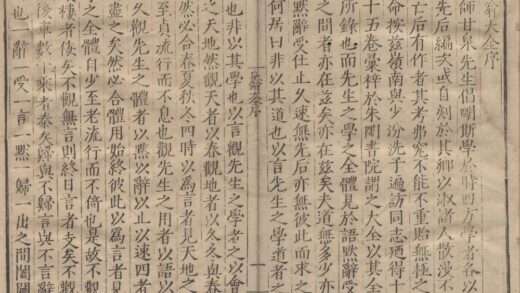 翁大全序
師甘泉先生倡明斯學於時四方學者各以
先後編次或自刻於其鄉以淑諸人散漫不
亡后有作者其考弗究不能不重貽無極之
命按茲嶺南與少汾冼子遍訪同志廼得十
十五卷彙梓於朱明書院謂之大全以其全
所錄也而先生之學之全體見於語默辭受
之間者亦在茲矣亦在茲矣夫道無多少亦
默辭受仕止久速無先后亦無彼此而求之
何居曰非以其道也以言先生之學道者之
泉翁大全序
一
也非以其學也以言觀先生之學者之以會
之天地然觀天者以春觀地者以冬冬與春
然必合春夏秋冬四時以為言者見天地之
至貞流行而不息也觀先生之用者以語以
久觀先生之體者以默以辭以止以速四者
盡之矣然必合體用始終彼此以為言者見
之全體自少至老流行而不倚也是故不觀
棲者倭矣不觀無言則終日言者支矣不觀
後車數十乘者泰矣歸與不歸言與不言辭
也一辭一受一言一默一歸一出之間闔闢